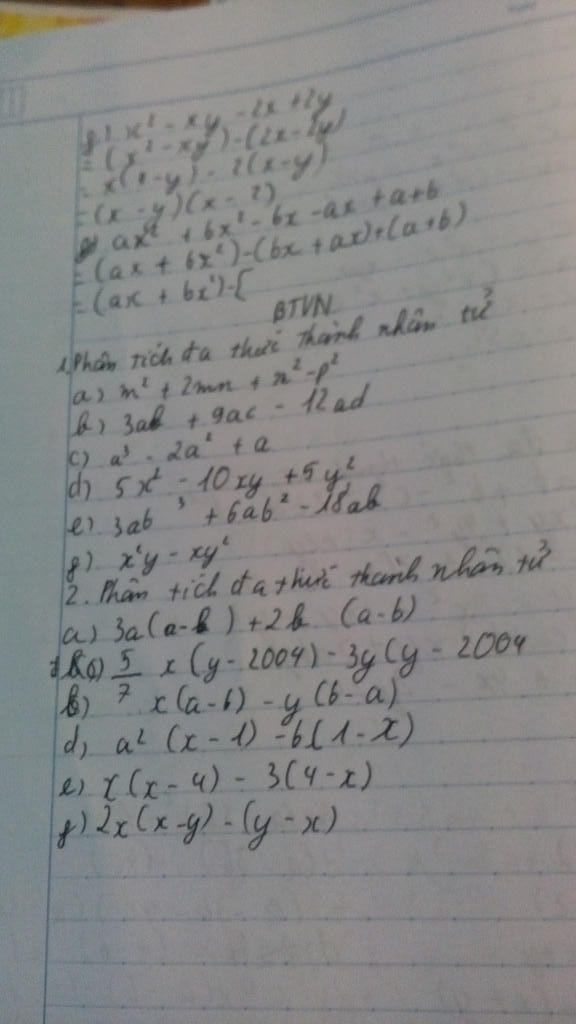 g) x² - xy - 2x + 2y
= (x² - xy) - (2x - 2y)
= x(x - y) - 2(x - y)
= (x - y)(x - 2)
ax² + bx² - bx - ax + a + b
= (ax + bx²) - (bx + ax) + (a + b)
= (ax + bx²) - [
BTVN
1. Phân tích đa thức thành nhân tử
a) m² + 2mn + n² - p²
b) 3ab + 9ac - 12ad
c) a³ - 2a² + a
d) 5x² - 10xy + 5y²
e) 3ab³ + 6ab² - 18ab
g) x²y - xy²
2. Phân tích đa thức thành nhân tử
a) 3a(a-b) + 2b (a-b)
5/7 x(y - 2004) - 3y(y - 2004
b) x(a-b) - y(b-a)
d) a² (x - 1) - b(1 - x)
e) x(x - 4) - 3(4 - x)
g) 2x(x - y) - (y - x)